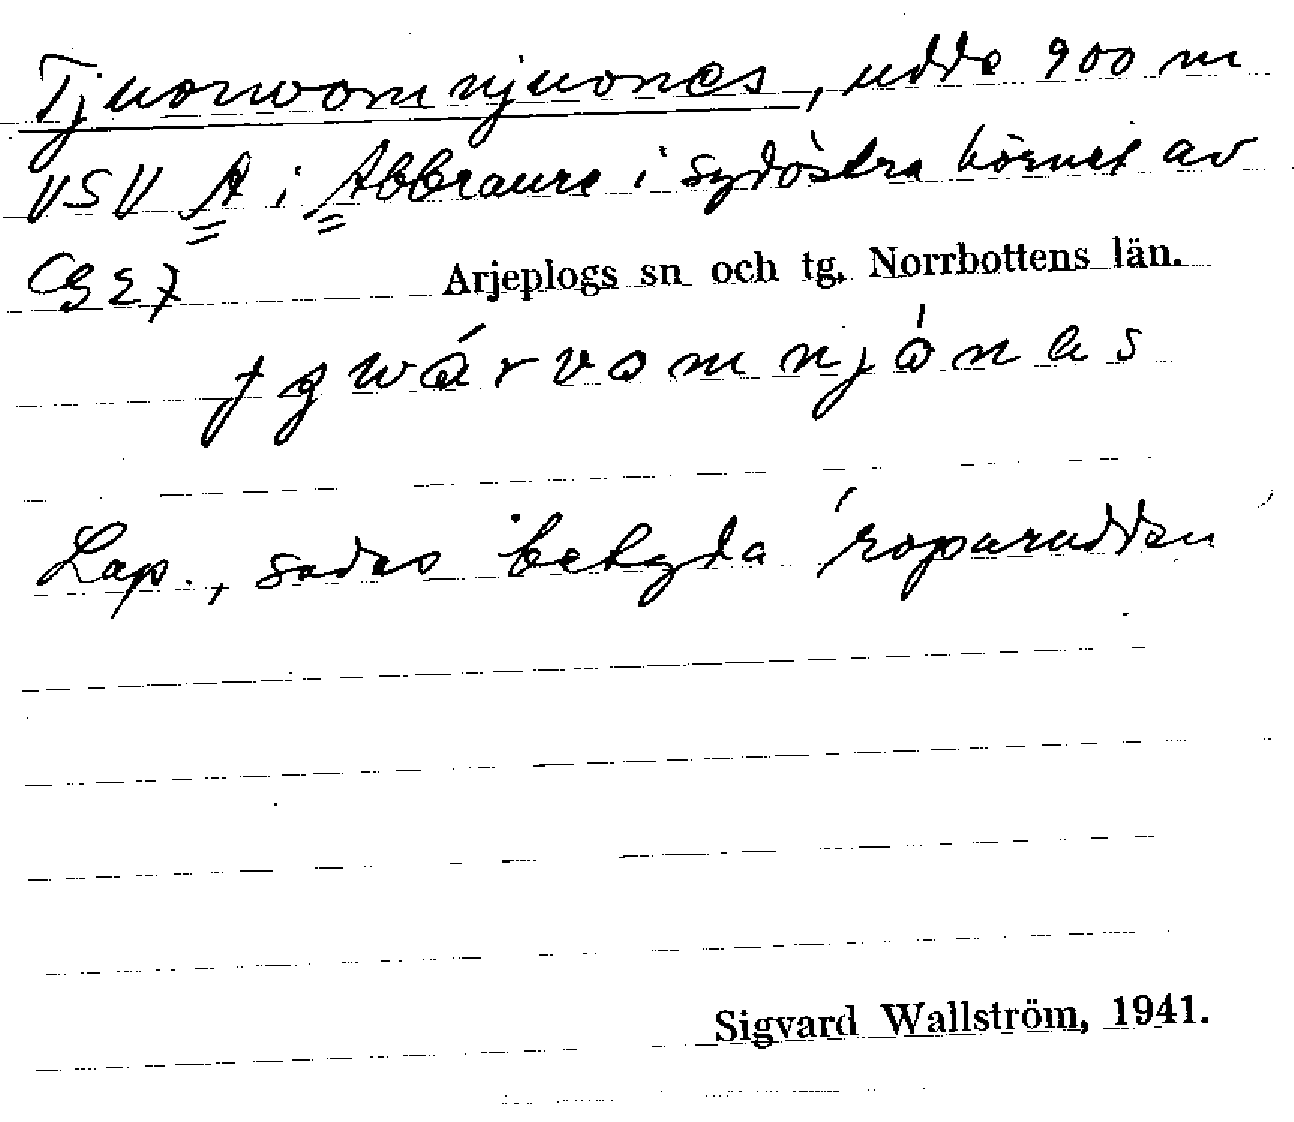 Tjuorvvomnjuones, udde 900 m
VSV A i Abbraure i sydöstra hörnet av
27 Arjeplogs sn och tg. Norrbottens län.
Lap., sades betyda 'roparudden'
Sigvard Wallström, 1941.